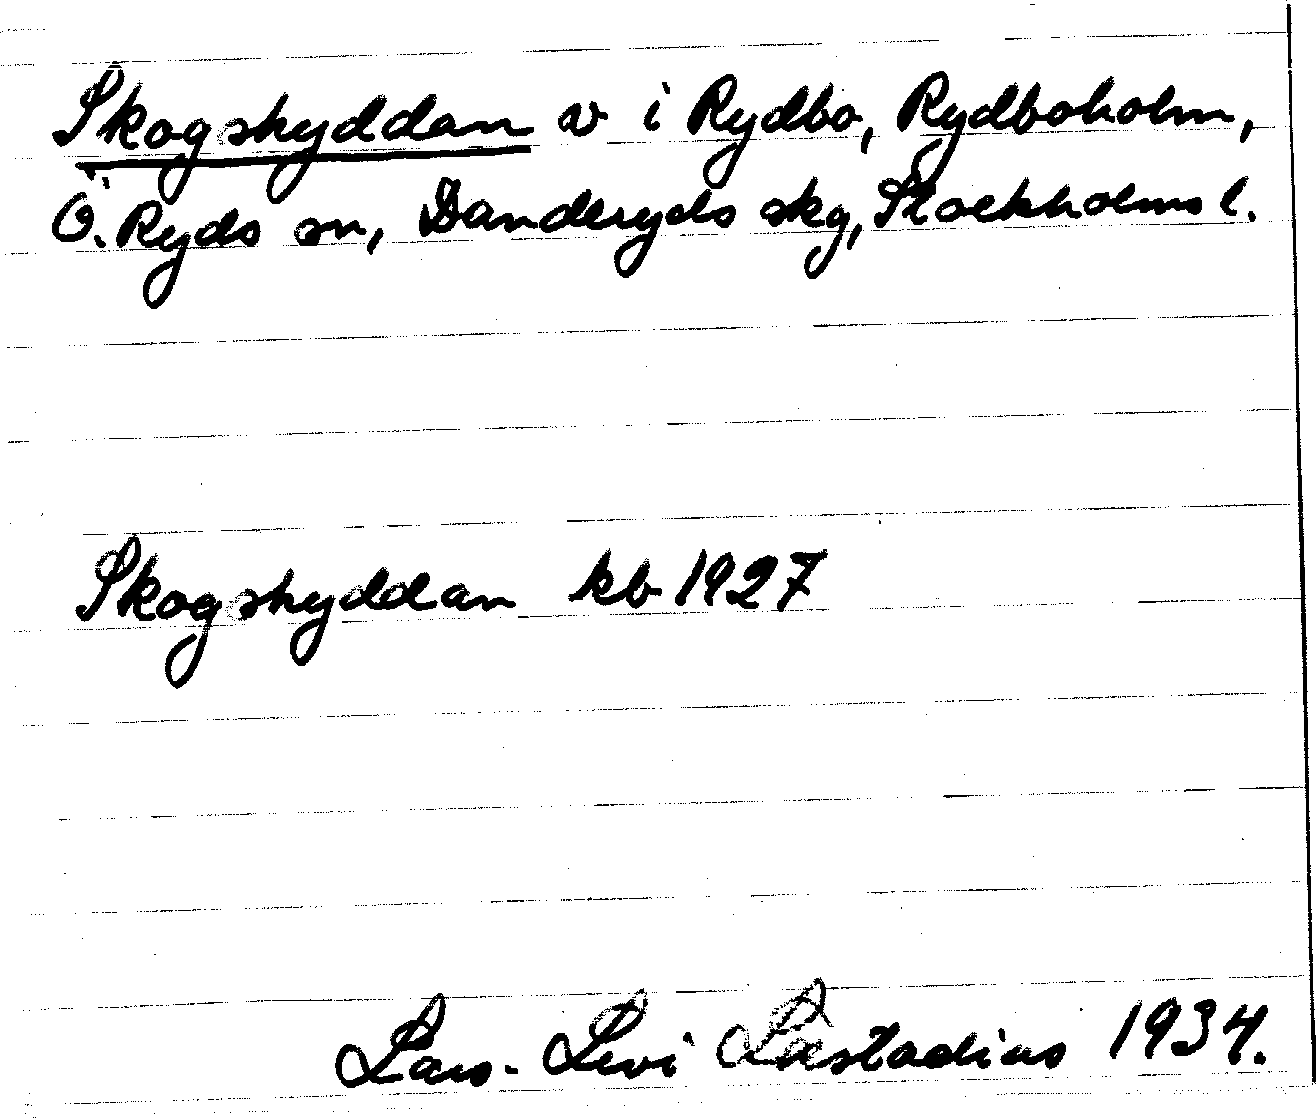 Skogshyddan v i Rydbo, Rydboholm,
Ö. Ryds sn, Danderyds skg, Stockholms l.
Skogshyddan kb 1927
Lars-Levi Læstadius 1934.